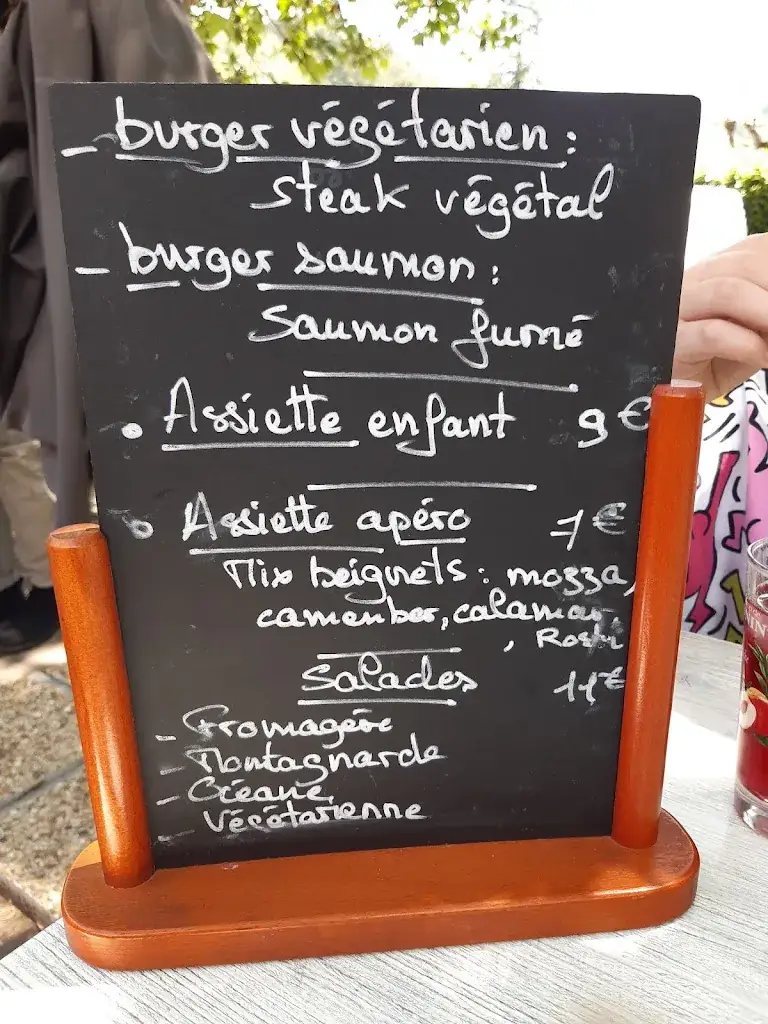 - burger végétarien :
steak végétal
- burger saumon :
Saumon fumé
• Assiette enfant 9€
• Assiette apéro 7€
Mix beignets : mozza,
camenber, calamar
, Rosti
Salades 11€
- Fromagère
- Montagnarde
- Océane
- Végétarienne